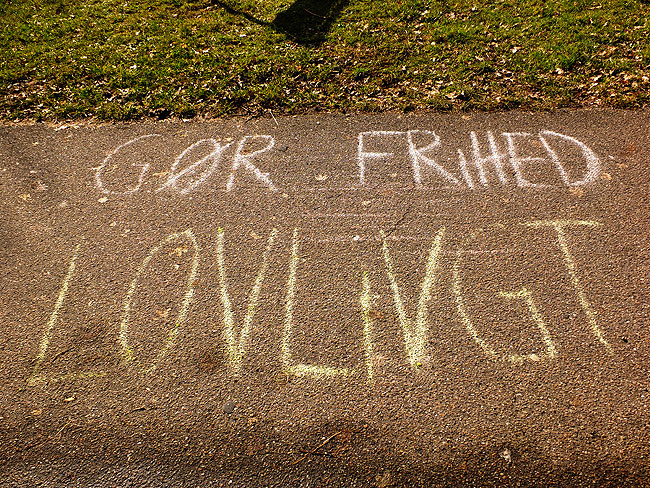 GØR FRIHED
LOVLIVGT